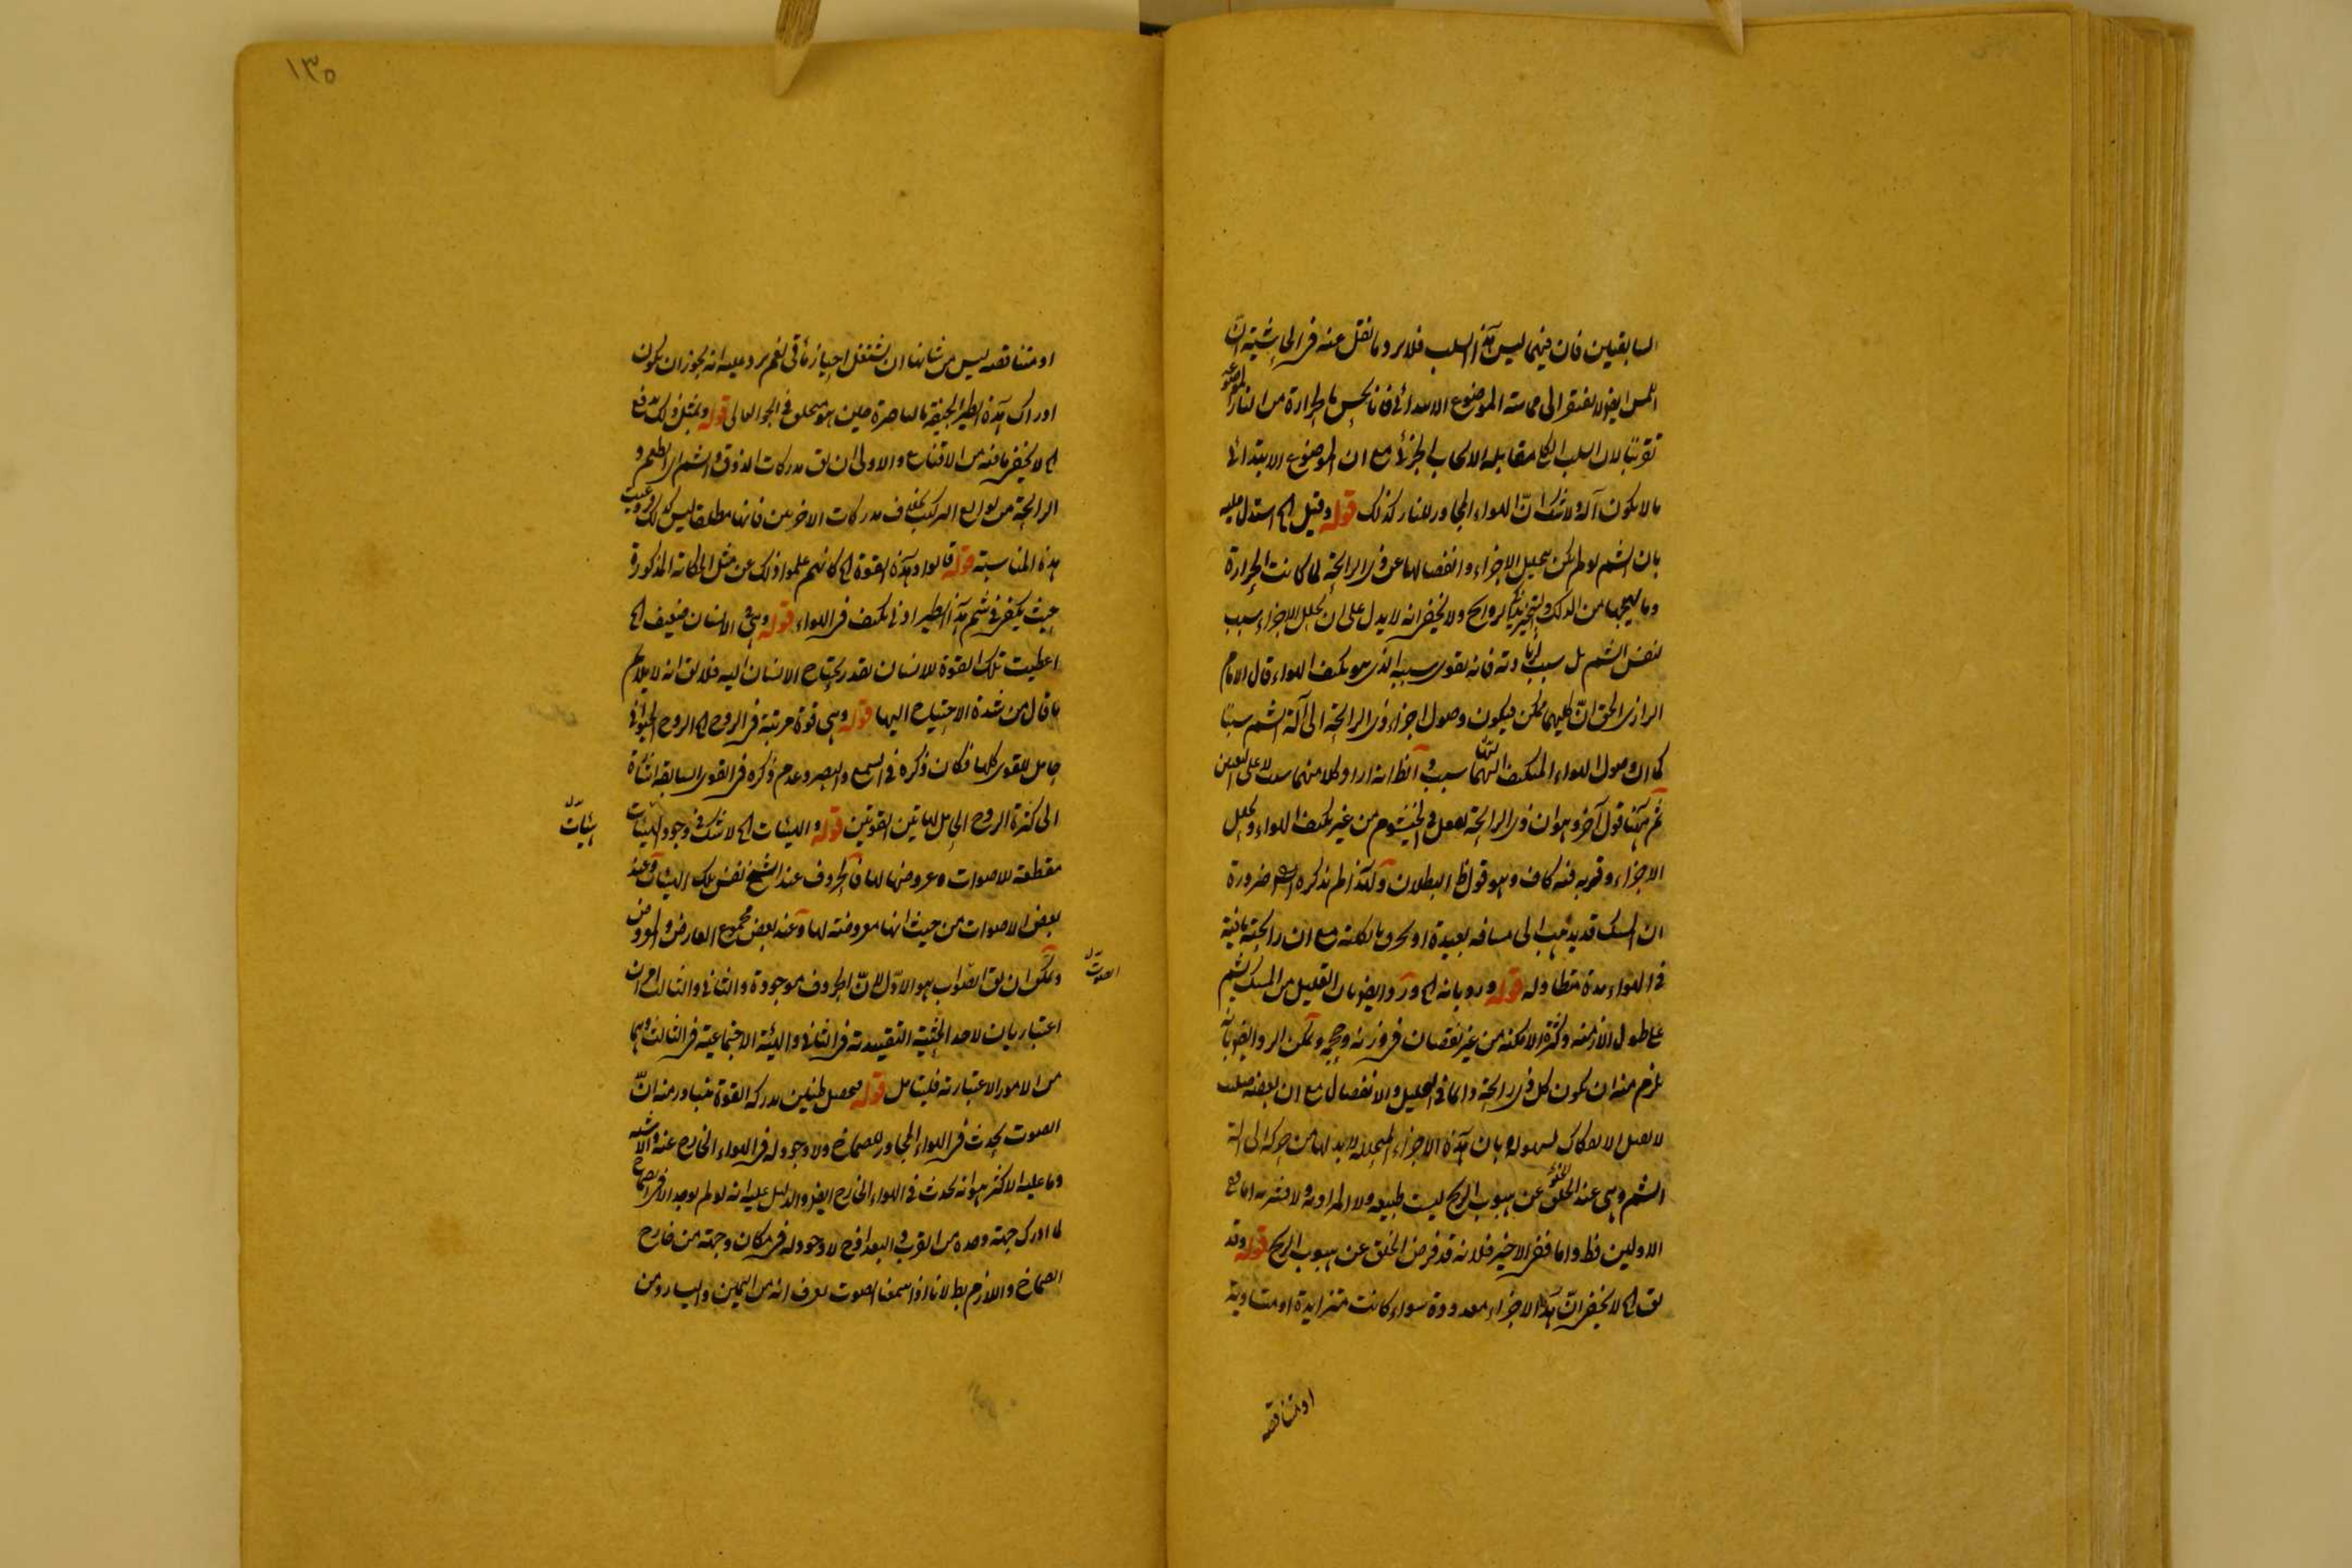 السابقين فان فيهما ليس هذا السلب فلا يرد ما نقل عنه فى الحاشية انّ
اللمس ايضا لا يفتقر الى مماسة الموضوع الابتدائى فانا نحس بالحرارة من النار الموضوعة
لان السلب الكلى مقابله الايجاب الجزئى مع ان الموضوع الابتدائى
ما لا يكون آلة ولا شك انّ الهواء المجاور للنار كذلك قوله وقيل الخ استدل عليه
بان الشم لو لم يكن بتحليل الاجزاء وانفصالها عن ذى الرائحة لما كانت الحرارة
وما يهيجها من الدلك والتبخير الروايح ولا يخفى انه لا يدل على ان تحلل الاجزاء سبب
لنفس الشم بل سبب فانه يقوى سببه الذى هو تكيف الهواء قال الامام
الرازى الحق انّ كليهما ممكن فيكون وصول اجزاء ذى الرائحة الى آلة الشم سببا
كما ان وصول الهواء المتكيف اليها سبب و الظ انه اراد كلا منهما على التعيين
ثم ههنا قول آخر وهو ان ذى الرائحة يفعل فى الخيشوم من غير تكيف الهواء وتحلل
الاجزاء وقربه منه كاف وهو قول ظ البطلان ولهذا لم يذكره ضرورة
ان المسك قد يذهب الى مسافة بعيدة او يحرق بالكلية مع ان رائحته باقية
فى الهواء مدة متطاولة قوله ورد بانه الخ ورد ايضا بان القليل من المسك يشم
على طول الازمنة وكثرة الامكنة من غير نقصان فى وزنه وحجمه ويمكن الرد ايضا بانه
يلزم منه ان يكون كل ذى رائحة دائما فى التحليل والانفصال مع ان بعضه صلب
لا يقبل الانفكاك بسهولة وبان هذه الاجزاء المتحللة لابد لها من حركة الى آلة
الشم وهى عند الخلو عن هبوب الريح ليست طبيعية ولا ارادية ولا قسرية اما فى
الاولين فظ واما فى الاخير فلانه قد فرض الخلو عن هبوب الريح قوله وقد
يق الخ لا يخفى انّ هذه الاجزاء معدودة سواء كانت متزايدة او متساوية
او متناقصه
١٣٥
او متناقصه ليس من شانها ان تشتغل احيازا نعم يرد عليه انه يجوز ان يكون
ادراك هذه الطير الجيفة بالباصرة حين هو متعلق فى الجو العالى قوله وبمثل ذلك
الخ لا يخفى ما فيه من الاقناع والاولى ان يق مدركات الذوق والشم اى الطعم و
الرائحة من توابع التركيب بخلاف مدركات الاخرين فانها مطلقا ليس كذلك
هذه المناسبة قوله قالوا وهذه القوة الخ كانهم علموا ذلك عن مثل الحكاية المذكورة
حيث يكفى فى شم هذا الطير ادنى تكيف فى الهواء قوله وهى فى الانسان ضعيف الخ
اعطيت تلك القوة للانسان بقدر يحتاج الانسان اليه فلا يق انه لا يلائم
ما قال من شدة الاحتياج اليها قوله وهى قوة مرتبة فى الروح الخ الروح الحيوانى
حامل للقوى كلها فكان ذكره فى السمع والبصر وعدم ذكره فى القوى السابقة اشارة
الى كثرة الروح الحامل لهاتين القوتين قوله والهيئات الخ لا شك فى وجود الهيئات
هيئات
مقطعة للاصوات وعروضها لها فالحروف عند الشيخ نفس تلك الهيئات وعند
بعض الاصوات من حيث انها معروضة لها وعند بعض مجموع العارض والمعروض
ويمكن ان يق الصواب هو الاول لانّ الحروف موجودة والثانى والثالث امران
الصوت
اعتباريان لاخذ الحيثية التقييدية فى الثانى والهيئة الاجتماعية فى الثالث وهما
من الامور الاعتبارية فليتامل قوله فيحصل طنين يدركه القوة متبادر منه انّ
الصوت يحدث فى الهواء المجاور للصماخ ولا وجود له فى الهواء الخارج عنه والاشبه
وما عليه الاكثر هو انه يحدث فى الهواء الخارج ايضا والدليل عليه انه لو لم يوجد الا فى الصماخ
لما ادرك جهته وحده من القرب والبعد اذ ح لا وجود له فى مكان وجهة من خارج
الصماخ واللازم بط لانا اذا سمعنا الصوت نعرف انه من اليمين واليسار ومن